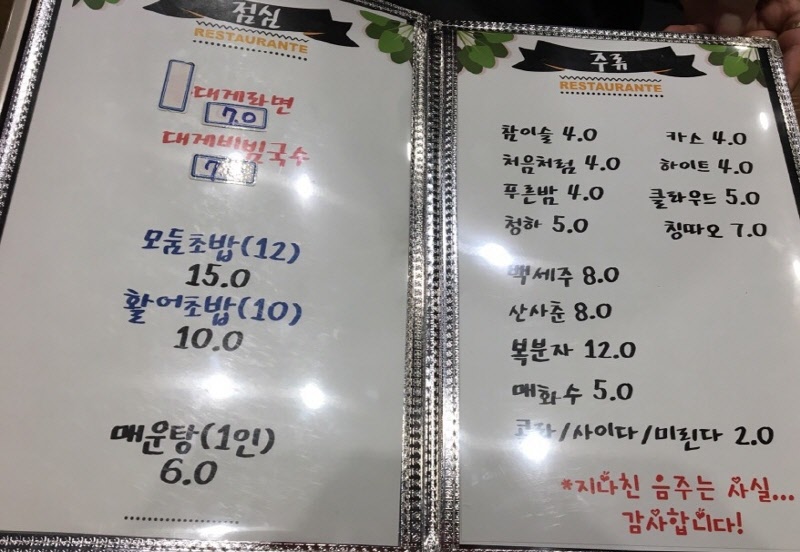 점심
RESTAURANTE
대게라면
7.0
대게비빔국수
7.0
모둠초밥(12)
15.0
활어초밥(10)
10.0
매운탕(1인)
6.0
주류
RESTAURANTE
참이슬 4.0
카스 4.0
처음처럼 4.0
하이트 4.0
푸른밤 4.0
클라우드 5.0
청하 5.0
칭따오 7.0
백세주 8.0
산사춘 8.0
복분자 12.0
매화수 5.0
코라/사이다/미린다 2.0
*지나친 음주는 사실...
감사합니다!